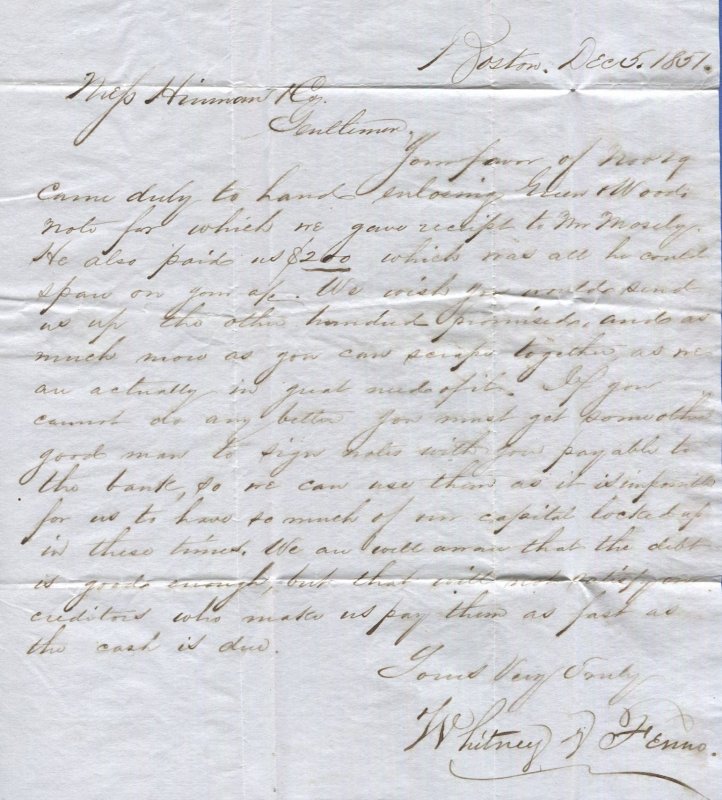 Boston. Dec 5. 1851.
Mess Hinman & Co.
Gentlemen,
Your favor of Nov 29
came duly to hand enclosing Green & Woods
note for which we gave receipt to Mr Mosely.
He also paid us $200 which was all he could
spare on your a/c. We wish you would send
us up the other hundred promised, and as
much more as you can scrape together as we
are actually in great need of it. If you
cannot do any better you must get some other
good man to sign notes with you payable to
the bank, so we can use them as it is impossible
for us to have so much of our capital locked up
in these times. We are well aware that the debt
is good enough, but that will not satisfy our
creditors who make us pay them as fast as
the cash is due.
Yours Very Truly
Whitney & Fenno.